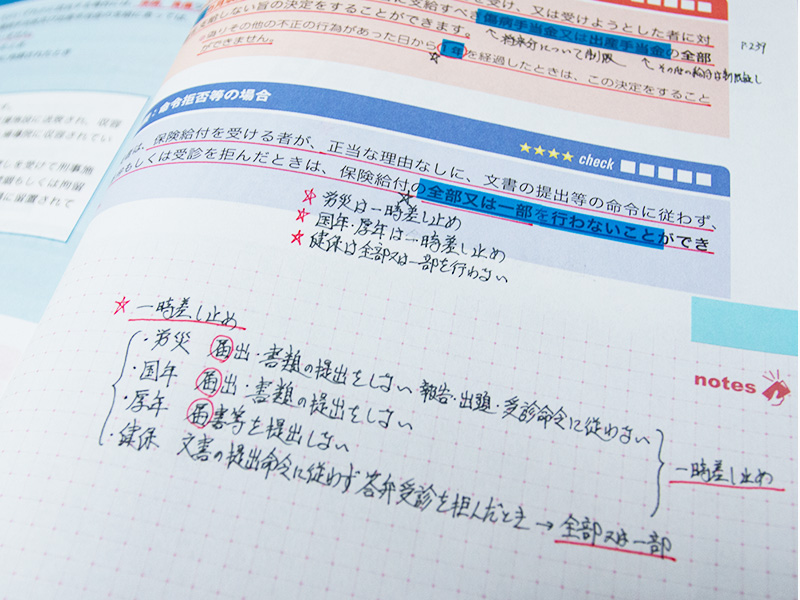 受け、又は受けようとした者に対
しない旨の決定をすることができます。
に支給すべき傷病手当金又は出産手当金の全部
偽りその他の不正の行為があった日から1年を経過したときは、この決定をすること
ができません。
将来分について制限
その他の給付は制限無し
P.239
命令拒否等の場合
check
は、保険給付を受ける者が、正当な理由なしに、文書の提出等の命令に従わず、
もしくは受診を拒んだときは、保険給付の全部又は一部を行わないことができ
労災は一時差し止め
国年・厚年は一時差し止め
健保は全部又は一部を行わない
一時差し止め
・労災 届出・書類の提出をしない 報告・出頭・受診命令に従わない
・国年 届出・書類の提出をしない
・厚年 届書等を提出しない
一時差し止め
・健保 文書の提出命令に従わず答弁受診を拒んだとき→全部又は一部
notes
に送致され、収容
に収容されてい
しを受けて刑事施
もしくは拘留
に留置されて